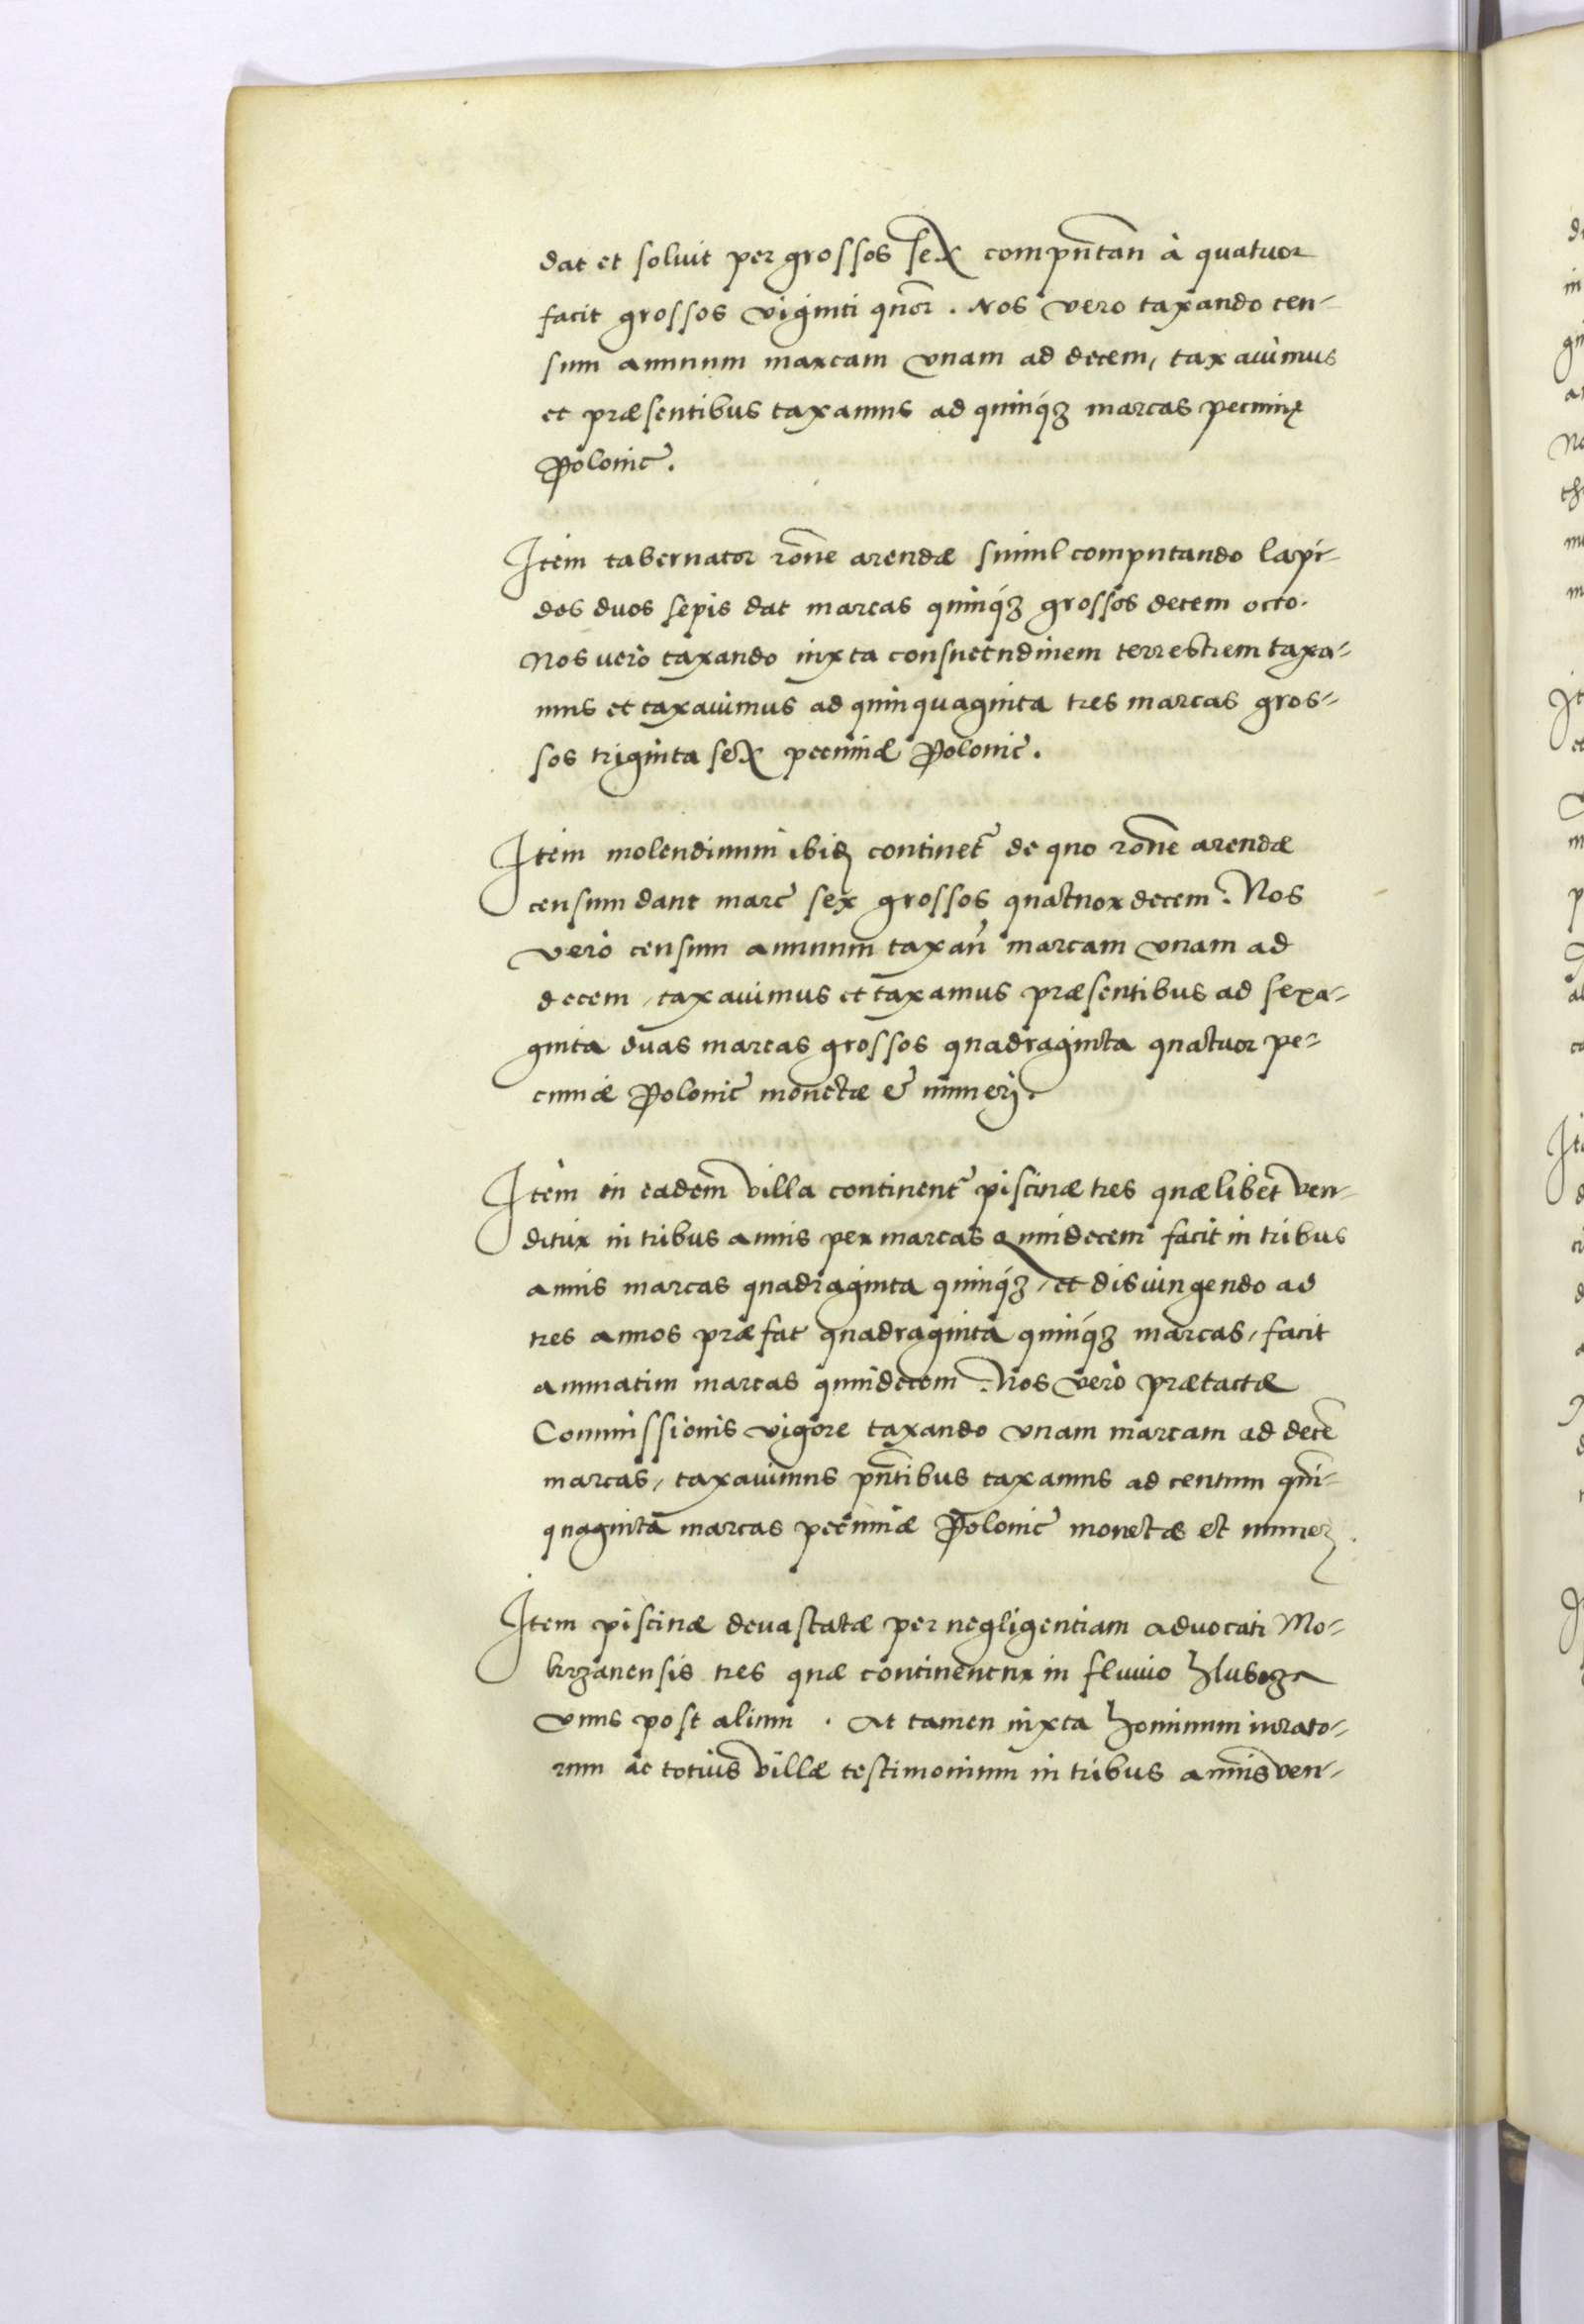 dat et soluit per grossos sex compñtan à quatuor
facit grossos viginti qñor. Nos vero taxando cen-
sum annuum marcam vnam ad decem, taxauimus
et præsentibus taxamus ad quinq́3 marcas pecunię
Polonic̃.
Item tabernator rõne arendæ simul computando lapi-
des duos sepis dat marcas quinq́3 grossos decem octo.
Nos uerò taxando iuxta consuetudinem terrestrem taxa-
mus et taxauimus ad quinquaginta tres marcas gros-
sos triginta sex pecuniæ Polonic̃.
Item molendinum ibid continet̃ de quo rõne arendæ
censum dant marc̃ sex grossos quatuordecem. Nos
verò censum annuum taxañ marcam vnam ad
decem, taxauimus et taxamus præsentibus ad sexa-
ginta duas marcas grossos quadraginta quatuor pe-
cuniæ Polonic̃ monetæ & numerj.
Item in eadem villa continent̃ piscinæ tres quælibet ven-
ditur in tribus annis per marcas quindecem facit in tribus
annis marcas quadraginta quinq́3, et disiungendo ad
tres annos præfat quadraginta quinq́3 marcas, facit
annuatim marcas quindecem. Nos verò prætactæ
Commissionis vigore taxando vnam marcam ad decẽ
marcas, taxauimus pñtibus taxamus ad centum quin-
quaginta marcas pecuniæ Polonic̃ monetæ et numerj.
Item piscinæ deuastatæ per negligentiam aduocati Mo-
krzanensis tres quæ continentur in fluuio
vnus post alium. At tamen iuxta hominum iurato-
rum ac totius villæ testimonium in tribus annis ven-